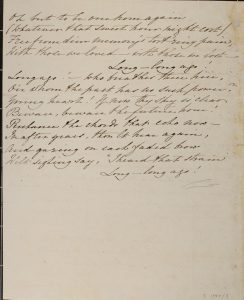 Oh but to be once more again
(Whatever that sweet hour might cost)
Free from dim memory's
With those we loved — with those we lost —
Long — long ago —
Long ago! — who breathes there, here,
On whom the past has no such power,
Young heart! If now thy sky is clear
Beware, beware the future hour —
Perchance the chords that echo now —
In after years, thou'lt hear again,
And gazing on each faded brow
Will sighing say, "I heard that strain
Long — long ago!